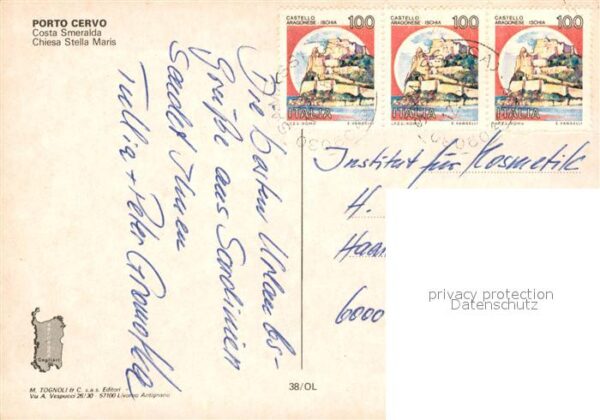 PORTO CERVO
Costa Smeralda
Chiesa Stella Maris
CASTELLO
ARAGONESE - ISCHIA 100
ITALIA
CASTELLO
ARAGONESE - ISCHIA 100
ITALIA
CASTELLO
ARAGONESE - ISCHIA 100
ITALIA
Die besten Urlaubs-
grüße aus Sardinien
sendet Ihnen
Tullia + Peter
Institut für Kosmetik
H.
Haan
6000
privacy protection
Datenschutz
Cagliari
M. TOGNOLI & C. s.a.s. Editori
Via A. Vespucci 26/30 - 57100 Livorno Antignano
38/OL